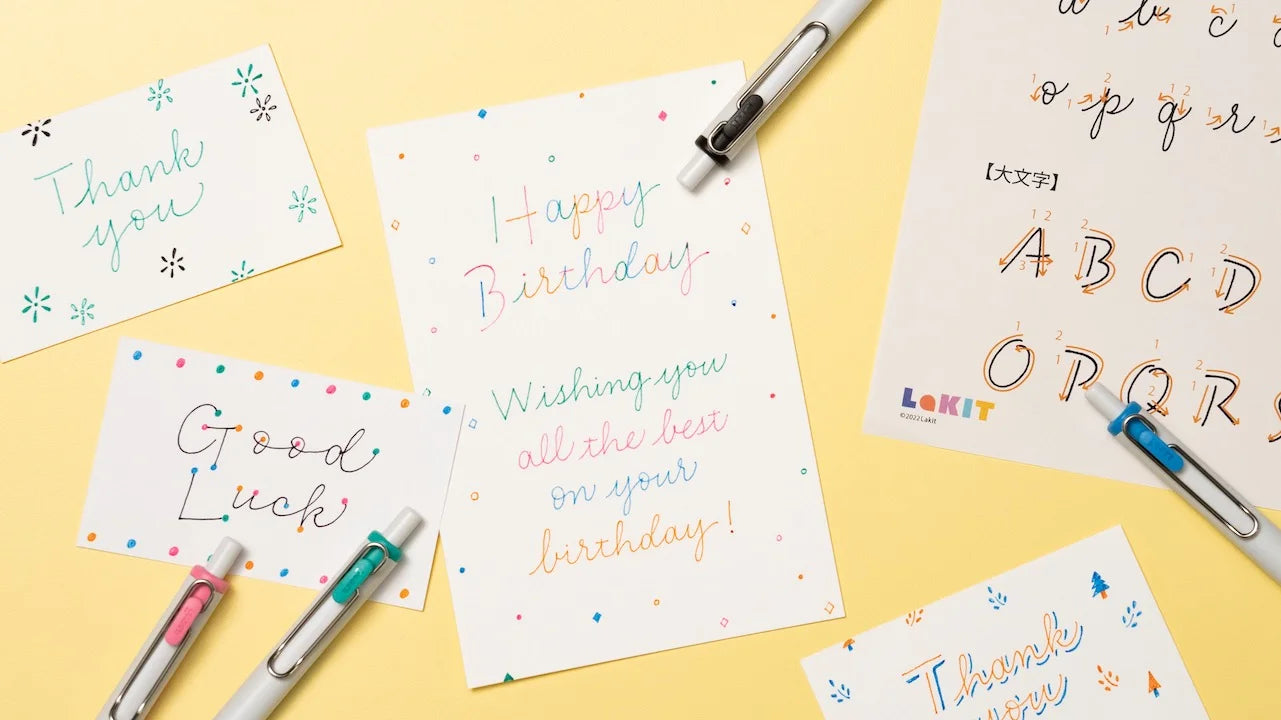 Thank
you
Happy
Birthday
Wishing you
all the best
on your
birthday!
Good
Luck
Thank
you
b c
o p q r
【大文字】
A B C D
O P Q R
LaKIT
©2022 Lakit